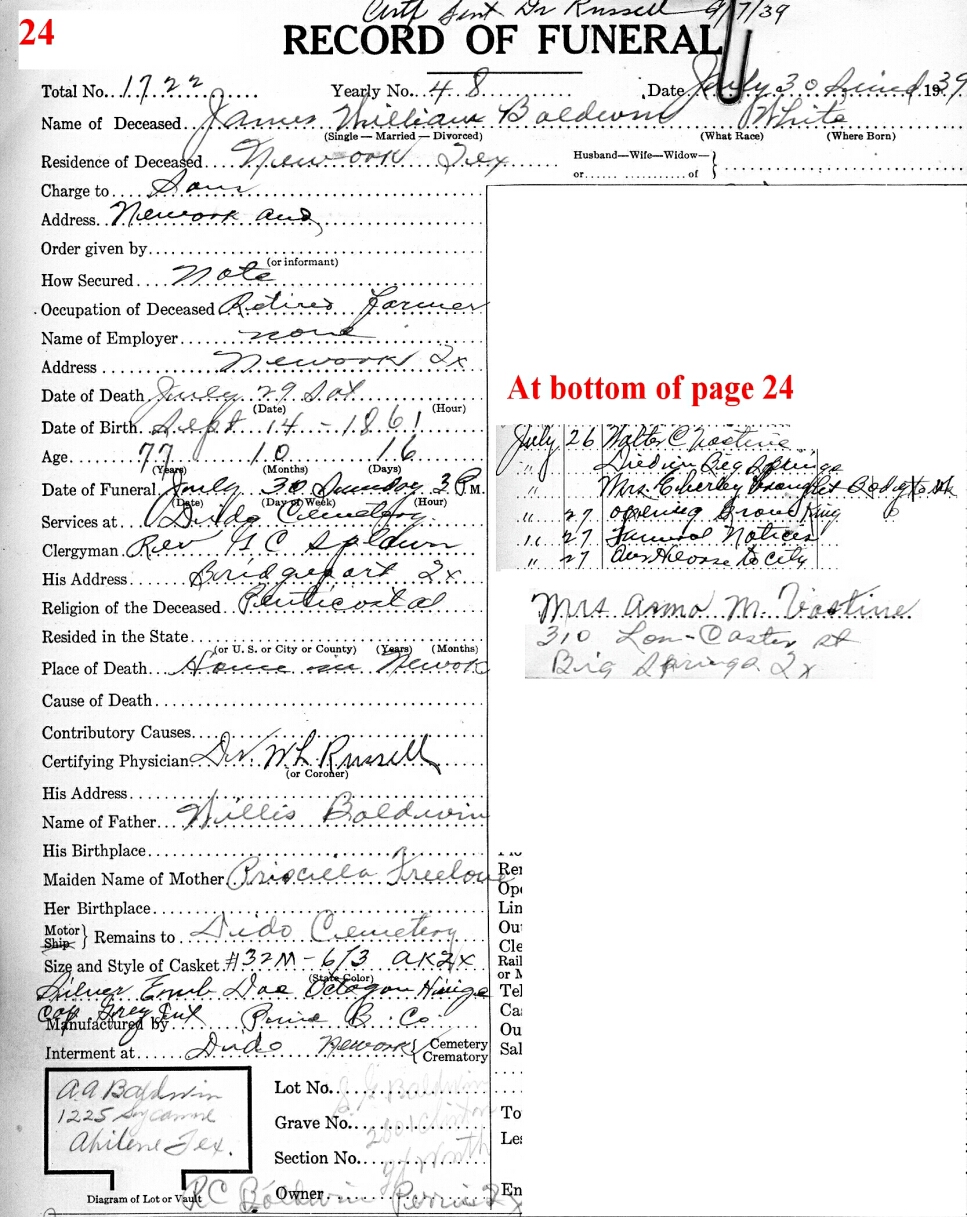 24
Certf Sent Dr Russell 9/7/39
RECORD OF FUNERAL
Total No. 1722 Yearly No. 48 Date July 30 1939
Name of Deceased James William Baldwin White
(Single — Married — Divorced) (What Race) (Where Born)
Residence of Deceased Newark Tex Husband—Wife—Widow—
or of
Charge to Sons
Address Newark and
Order given by
(or informant)
How Secured Note
Occupation of Deceased Retired Farmer
Name of Employer none
Address Newark Tx
Date of Death July 29 Sat
(Date) (Hour)
Date of Birth Sept 14 - 1861
Age 77 10 16
(Years) (Months) (Days)
Date of Funeral July 30 Sunday 3 P M.
(Date) (Day of Week) (Hour)
Services at Dido Cemetery
Clergyman Rev G C
His Address Bridgeport Tx
Religion of the Deceased Penticostal
Resided in the State
(or U. S. or City or County) (Years) (Months)
Place of Death Home Newark
Cause of Death
Contributory Causes
Certifying Physician Dr. W L Russell
(or Coroner)
His Address
Name of Father Willis Baldwin
His Birthplace
Maiden Name of Mother Priscilla Freelove
Her Birthplace
Motor
Ship Remains to Dido Cemetery
Size and Style of Casket #32M - 6/3
(State Color)
Silver Emb Doe Octagon Hinge
Cap Grey Int
Manufactured by B. Co
Interment at Dido Newark Cemetery
Crematory
A A Baldwin
1225 Sycamore
Abilene Tex.
Diagram of Lot or Vault
Lot No. Baldwin
Grave No.
Section No.
Owner
R C Baldwin
At bottom of page 24
July 26 Walter C Vastine
" Died in Big Springs
" Mrs. brought
" 27 opening Grave King 6
" 27 Funeral Notices
" 27 to City
Mrs Anna M. Vastine
310 Lan-Caster st
Big Springs Tx
Rel
Ope
Lin
Ou
Cle
Rail
or M
Tel
Ca
Ou
Sal
To
Les
En